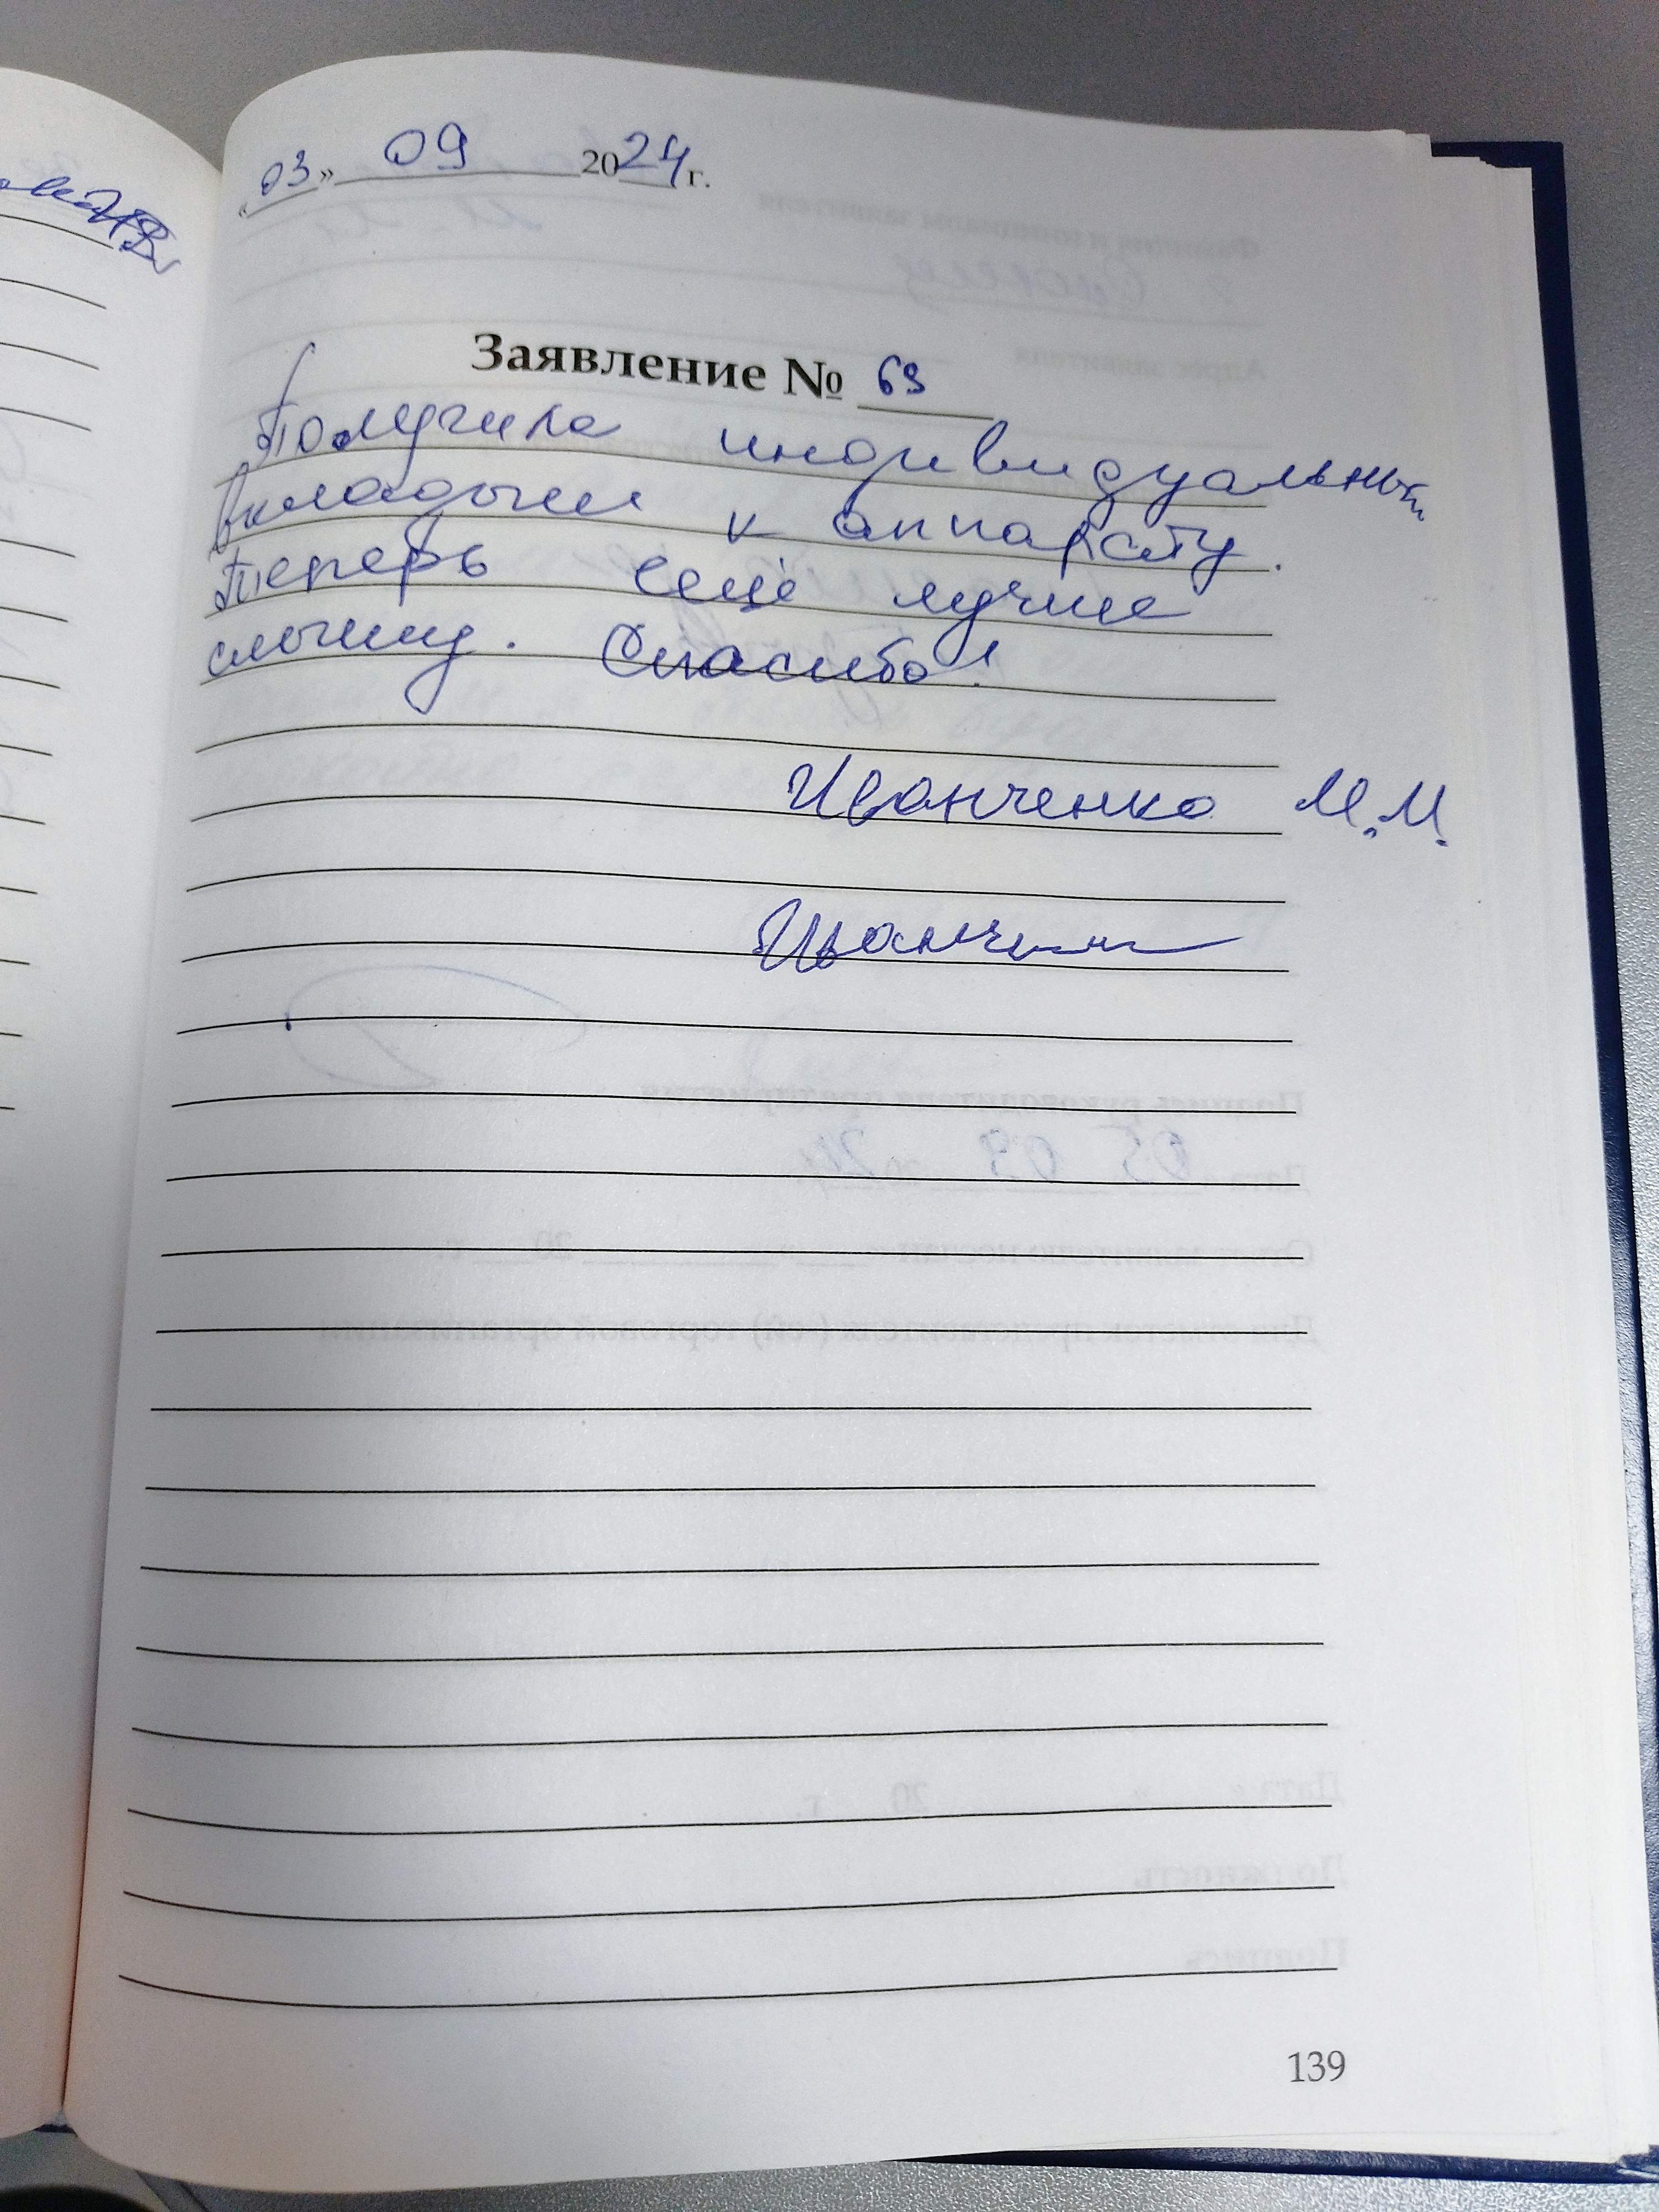 «03» 09 2024 г.
Заявление № 69
Получила индивидуальный
вкладыш к аппарату.
Теперь ещё лучше
слышу. Спасибо!
Иванченко М.М.
139